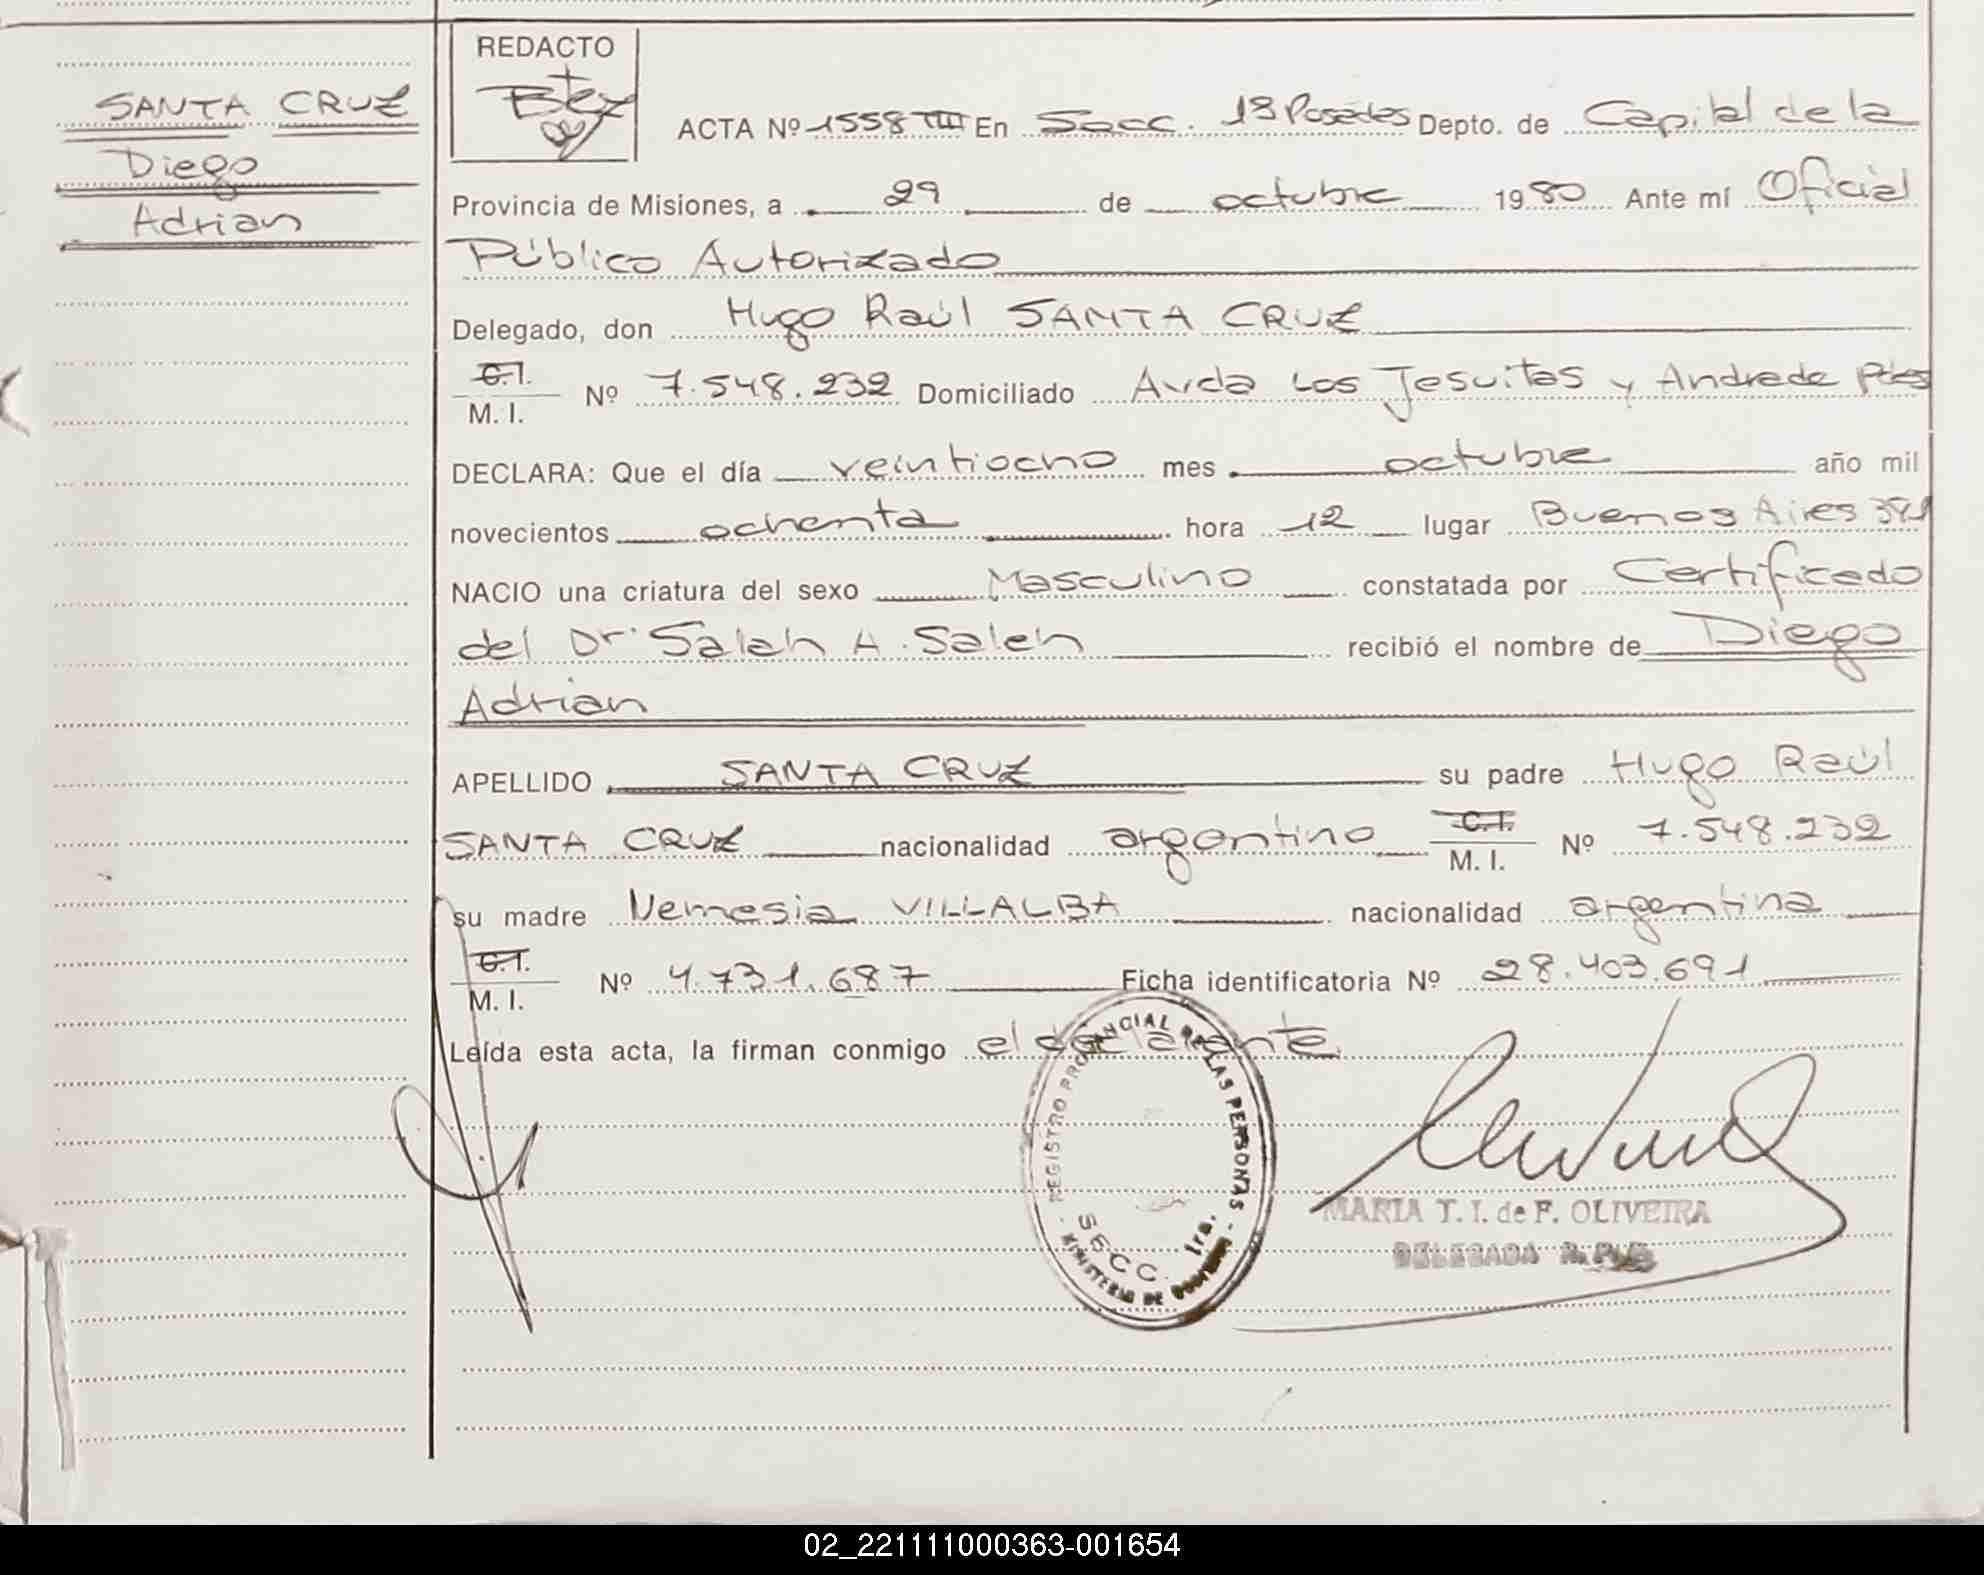 SANTA CRUZ
Diego
Adrian
REDACTO
ACTA Nº 1558 TIII En Secc. 1ª Posadas Depto. de Capital de la
Provincia de Misiones, a 29 de octubre 1980 Ante mí Oficial
Público Autorizado
Delegado, don Hugo Raúl SANTA CRUZ
C.I.
M. I. Nº 7.548.232 Domiciliado Avda Los Jesuitas y Andrade Pdas
DECLARA: Que el día veintiocho mes octubre año mil
novecientos ochenta hora 12 lugar Buenos Aires 381
NACIO una criatura del sexo Masculino constatada por Certificado
del Dr. Saleh A. Saleh recibió el nombre de Diego
Adrian
APELLIDO SANTA CRUZ su padre Hugo Raúl
SANTA CRUZ nacionalidad argentino C.I. M. I. Nº 7.548.232
su madre Nemesia VILLALBA nacionalidad argentina
C.I.
M. I. Nº 4.731.687 Ficha identificatoria Nº 28.403.691
Leída esta acta, la firman conmigo el declarante.
REGISTRO PROVINCIAL DE LAS PERSONAS
SECC. 1ra.
MINISTERIO DE GOBIERNO
MARIA T. I. de F. OLIVEIRA
DELEGADA
02_221111000363-001654